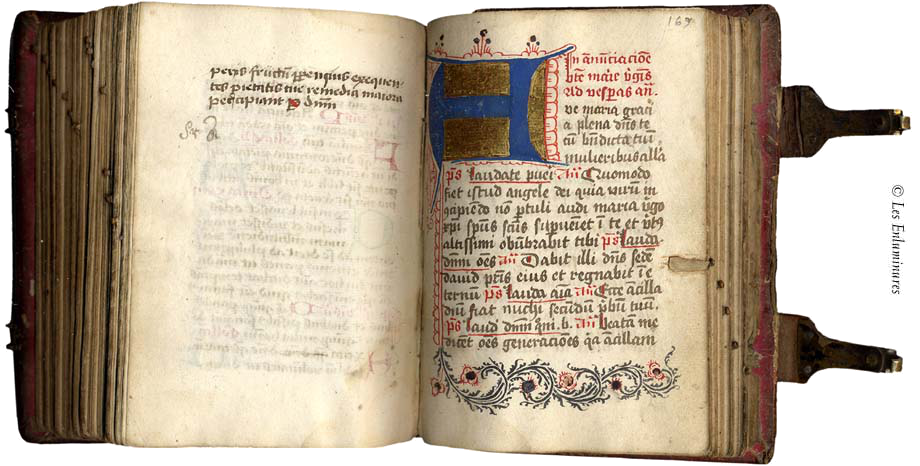 percis fructu perengius exequen-
tes pietatis tue remedia maiora
percipiant p dnm
169
In annūciacōe
bte marie vgīs
Ad vesperas an.
ve maria graci
a plena dns te
cū bndicta tu ī
mulieribus alla
ps laudate pueri an Quomodo
fiet istud angele dei quia virum in
cipiendo non ptuli audi maria vgo
xpi spus scus supueniet ī te et vtus
altissimi obūbrabit tibi ps lauda
dnm oēs an Dabit illi dns sedē
dauid pris eius et regnabit ī e
ternum ps lauda aīa an Ecce ancilla
dni fiat michi secundū vbum tuū
ps laud dnm qm. b. an beata me
dicēt oēs generacōes qa ancillam
© Les Enluminures